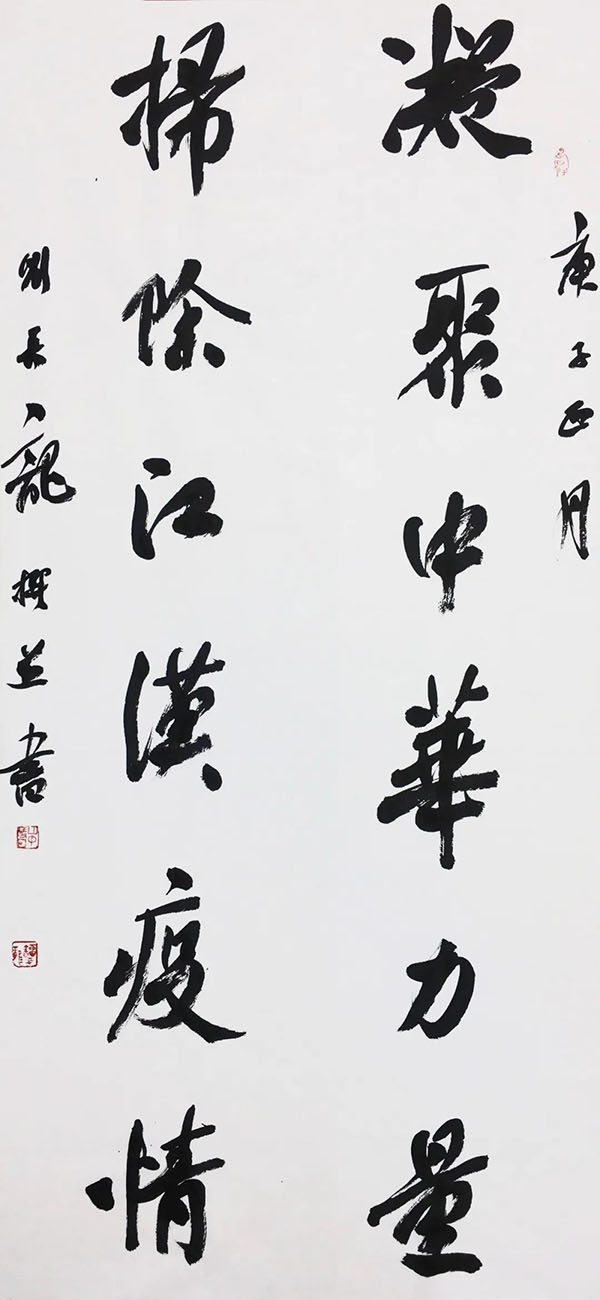 庚子正月
凝聚中華力量
掃除江漢疫情
劉長龍撰並書